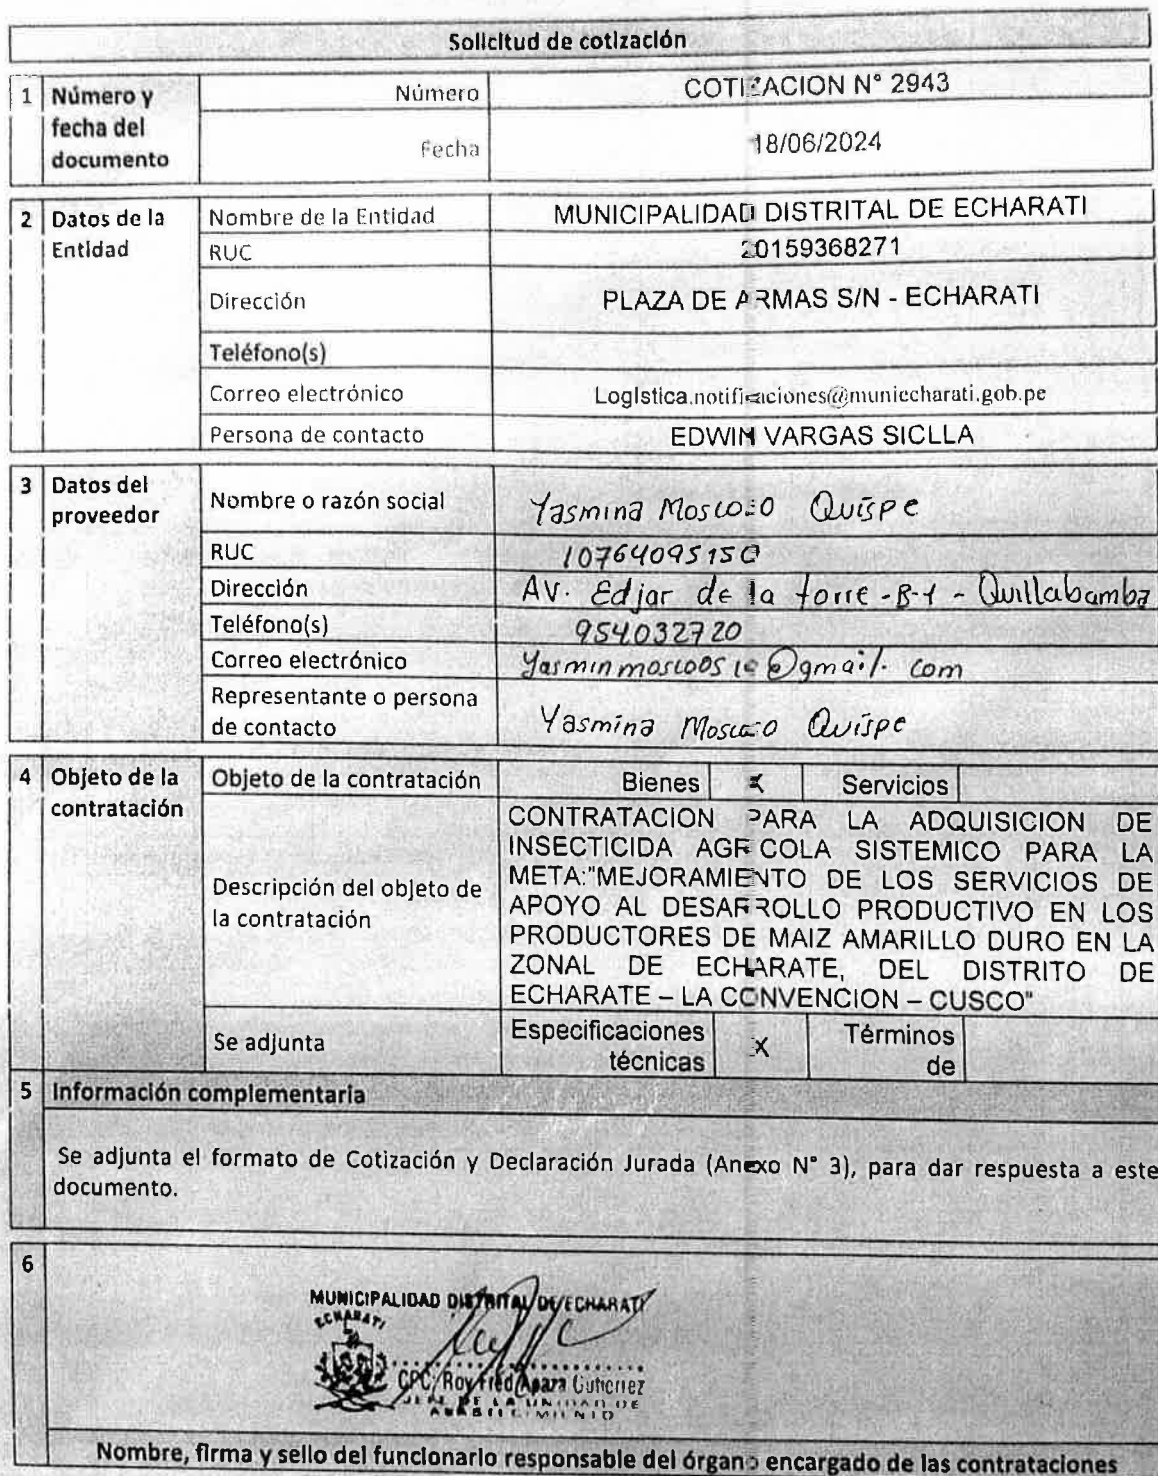 Solicitud de cotización
1 Número y fecha del documento
Número COTIZACION N° 2943
Fecha 18/06/2024
2 Datos de la Entidad
Nombre de la Entidad MUNICIPALIDAD DISTRITAL DE ECHARATI
RUC 20159368271
Dirección PLAZA DE ARMAS S/N - ECHARATI
Teléfono(s)
Correo electrónico Logistica.notificaciones@muniecharati.gob.pe
Persona de contacto EDWIN VARGAS SICLLA
3 Datos del proveedor
Nombre o razón social Yasmina Moscoso Quispe
RUC 10764095150
Dirección AV. Edjar de la torre - B-1 - Quillabamba
Teléfono(s) 954032720
Correo electrónico @gmail.com
Representante o persona de contacto Yasmina Moscoso Quispe
4 Objeto de la contratación
Objeto de la contratación Bienes X Servicios
Descripción del objeto de la contratación
CONTRATACION PARA LA ADQUISICION DE
INSECTICIDA AGRICOLA SISTEMICO PARA LA
META:"MEJORAMIENTO DE LOS SERVICIOS DE
APOYO AL DESARROLLO PRODUCTIVO EN LOS
PRODUCTORES DE MAIZ AMARILLO DURO EN LA
ZONAL DE ECHARATE, DEL DISTRITO DE
ECHARATE – LA CONVENCION – CUSCO"
Se adjunta Especificaciones técnicas X Términos de
5 Información complementaria
Se adjunta el formato de Cotización y Declaración Jurada (Anexo N° 3), para dar respuesta a este
documento.
6
MUNICIPALIDAD DISTRITAL DE ECHARATI
ECHARATI
CPC. Roy Fred Apaza Gutierrez
JEFE DE LA UNIDAD DE
ABASTECIMIENTO
Nombre, firma y sello del funcionario responsable del órgano encargado de las contrataciones